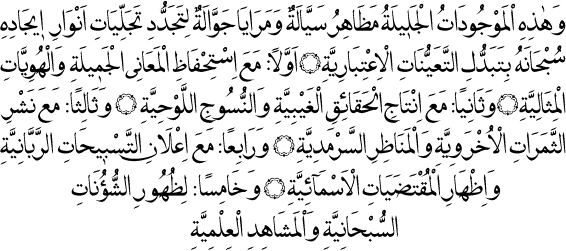 وَهٰذِهِ الْمَوْجُودَاتُ الْجَلِيلَةُ مَظَاهِرُ سَيَّالَةٌ وَمَرَايَا جَوَّالَةٌ لِتَجَدُّدِ تَجَلِّيَاتِ أَنْوَارِ إِيجَادِهِ
سُبْحَانَهُ بِتَبَدُّلِ التَّعَيُّنَاتِ الْاِعْتِبَارِيَّةِ ۞ أَوَّلًا: مَعَ اِسْتِحْفَاظِ الْمَعَانِى الْجَمِيلَةِ وَالْهُوِيَّاتِ
الْمِثَالِيَّةِ ۞ وَثَانِيًا: مَعَ اِنْتَاجِ الْحَقَائِقِ الْغَيْبِيَّةِ وَالنُّسُوجِ اللَّوْحِيَّةِ ۞ وَثَالِثًا: مَعَ نَشْرِ
الثَّمَرَاتِ الْأُخْرَوِيَّةِ وَالْمَنَاظِرِ السَّرْمَدِيَّةِ ۞ وَرَابِعًا: مَعَ اِعْلَانِ التَّسْبِيحَاتِ الرَّبَّانِيَّةِ
وَاِظْهَارِ الْمُقْتَضَيَاتِ الْاَسْمَآئِيَّةِ ۞ وَخَامِسًا: لِظُهُورِ الشُّؤُنَاتِ
السُّبْحَانِيَّةِ وَالْمَشَاهِدِ الْعِلْمِيَّةِ